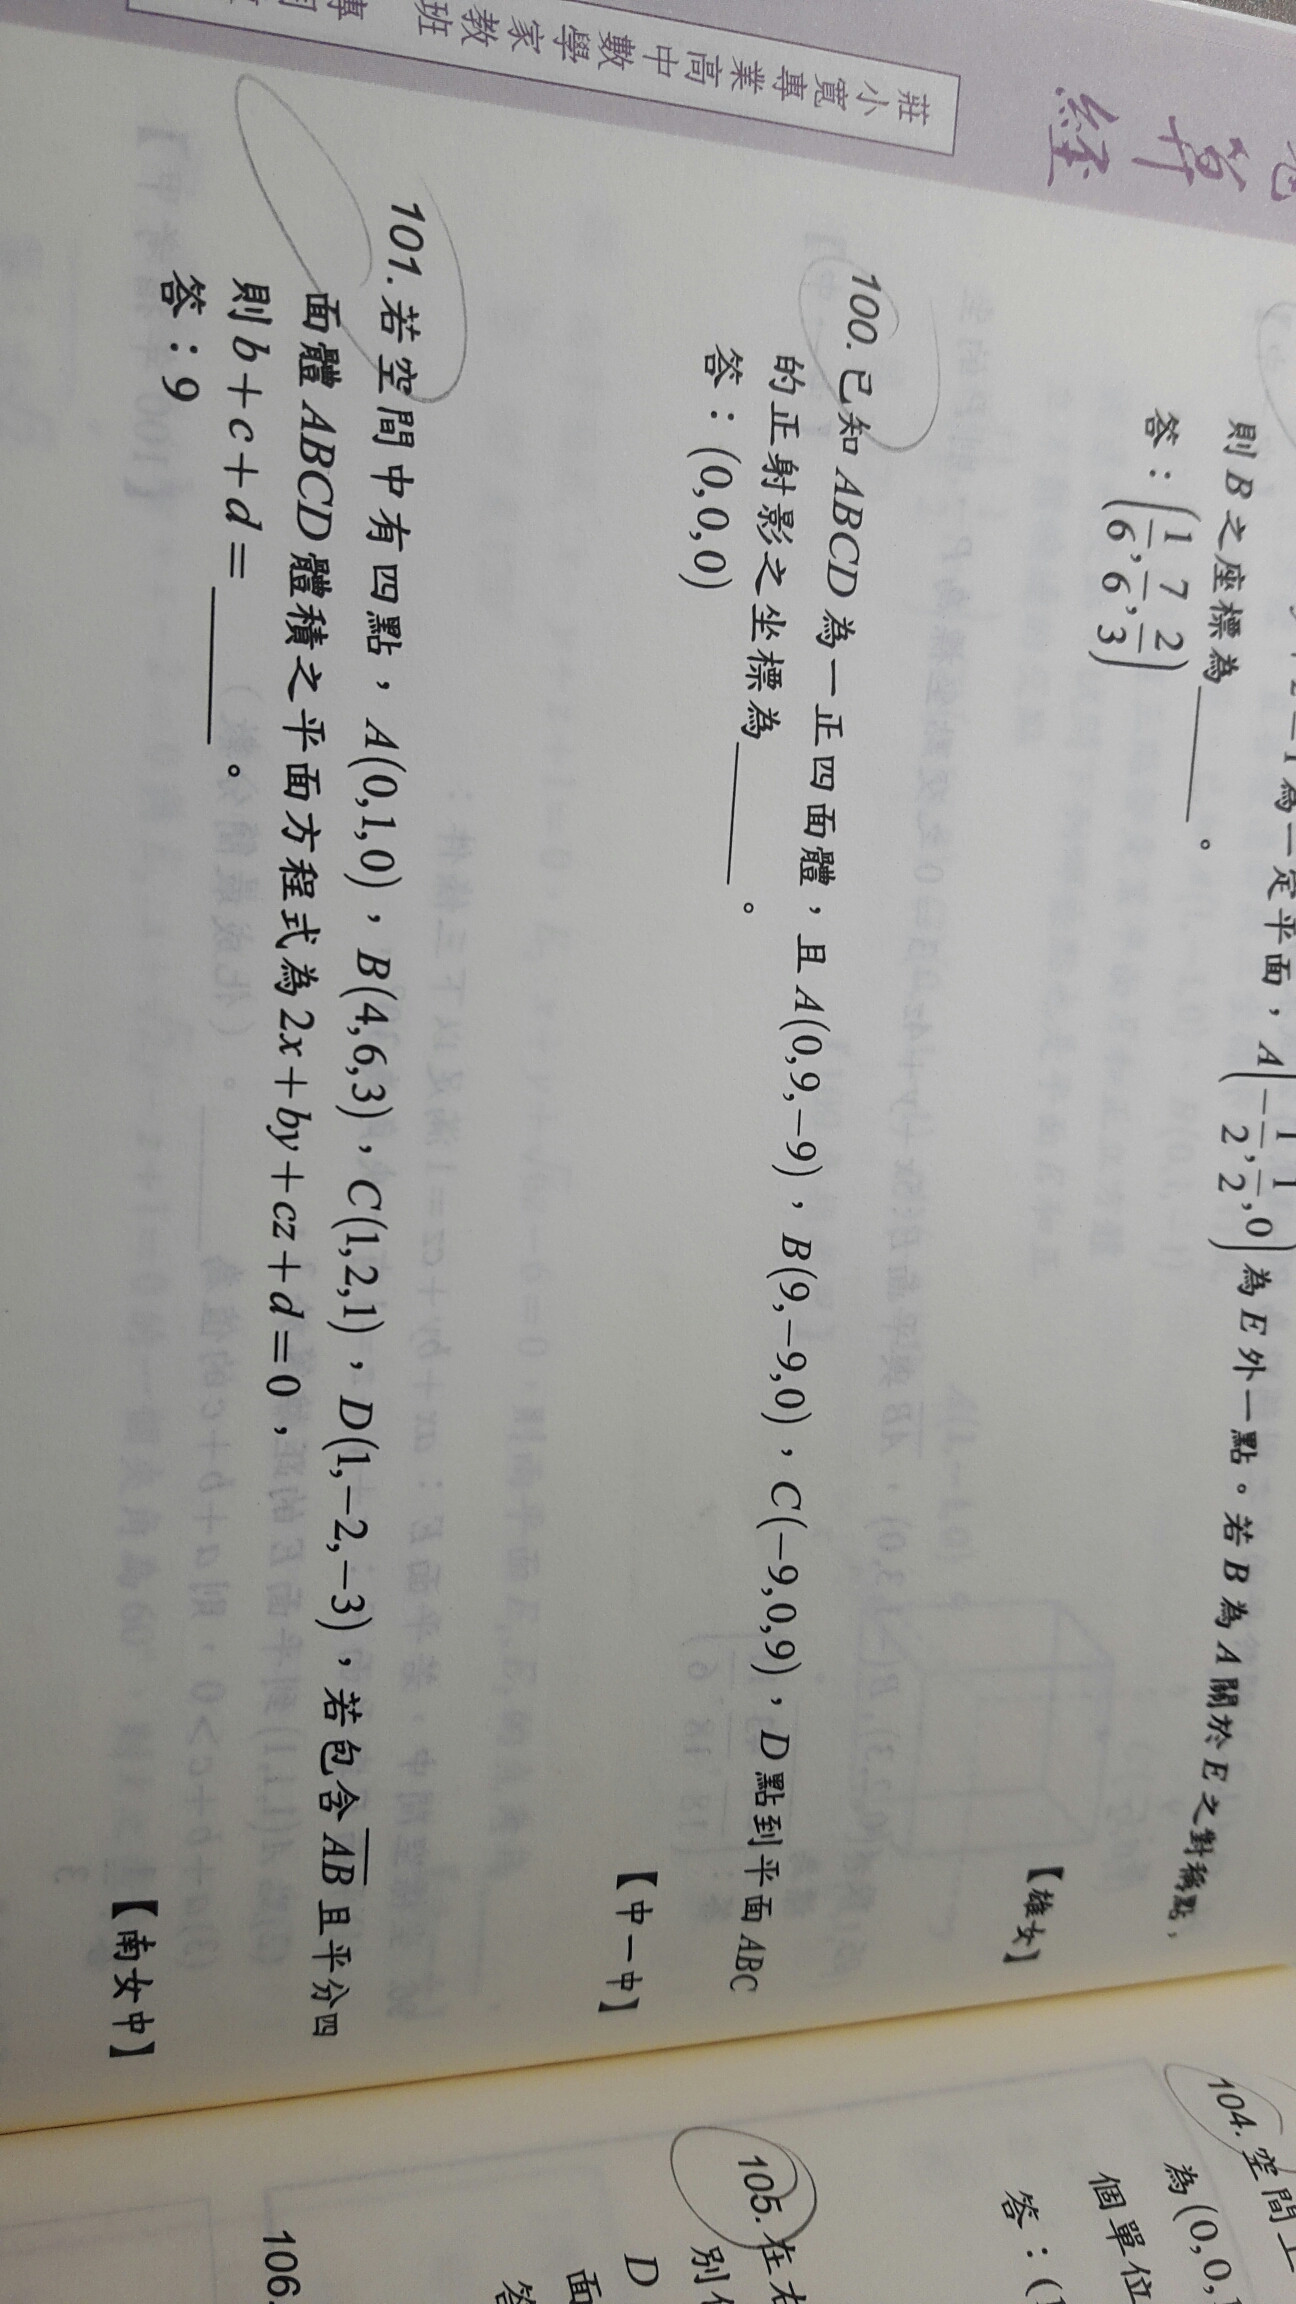 算經
莊小寬專業高中數學家教班
為一定平面，A(-1/2, 1/2, 0)為E外一點。若B為A關於E之對稱點，
則B之座標為______。
答：(1/6, 7/6, 2/3)
【雄女】
100. 已知ABCD為一正四面體，且A(0,9,−9)，B(9,−9,0)，C(−9,0,9)，D點到平面ABC
的正射影之坐標為______。
答：(0,0,0)
【中一中】
101. 若空間中有四點，A(0,1,0)，B(4,6,3)，C(1,2,1)，D(1,−2,−3)，若包含AB且平分四
面體ABCD體積之平面方程式為2x+by+cz+d=0，
則b+c+d=______。
答：9
【南女中】
104. 空間上
為(0,0,
個單位
答：(
105. 在
別
D
面
答
106.